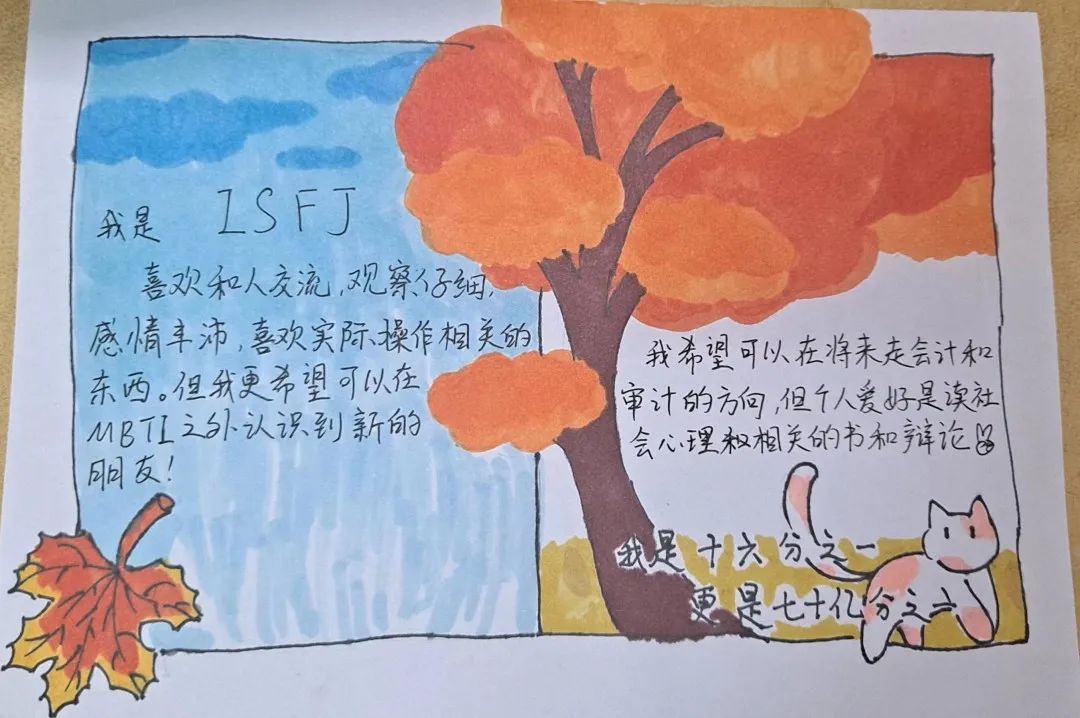 我是 ISFJ
喜欢和人交流,观察仔细,
感情丰沛,喜欢实际操作相关的
东西。但我更希望可以在
MBTI之外认识到新的
朋友!
我希望可以在将来走会计和
审计的方向,但个人爱好是读社
会心理相关的书和辩论
我是十六分之一
更是七十亿分之一